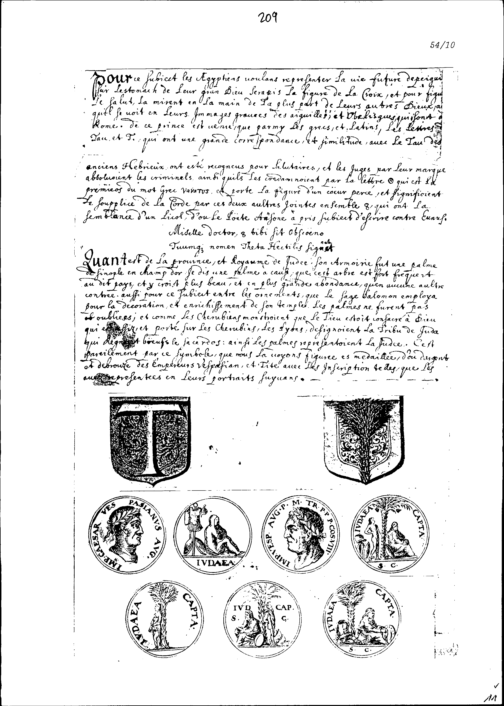 209
54/10
Pour ce subiect les Ægyptiens voulans representer La vie future depeignoi
sur Lestomach de Leur gran Dieu Serapis La figure de La Croix, et pour
Le salut, La mirent en La main de La plus part de Leurs autres Dieux,
qu'il se voit en Leurs Jmmages grauees des aiguilles, et Obelisques qui sont à
Rome. De ce prince est uenu, que parmy Les grecs, et Latins, Les Lettres
Tau, et T. qui ont une grande correspondance, et similitude auec Le Tau des
anciens Hebrieux ont esté recogneus pour salutaires, et les Juges par Leur marque
absoluoient les criminels ainsi quilz Les condamnoient par La lettre Θ qui est La
premiere du mot grec et porte La figure d'un coeur percé, et signifioient
Le supplice de La Corde par ces deux aultres jointes ensemble qui ont La
semblance d'un Licol. d'ou Le Poete Ausone à pris subiect d'escrire contre Eunus.
Miselle doctor, tibi sit obsceno
Tuumq, nomen Theta sectilis signet
Quant est de La prouince, et Royaume de Judee. son Armoirie fut une palme
de sinople en champ d'or je dis une palme a cause que cest arbre est fort frequent
au dit pays, et y croist plus beau, et en plus grande abondance, qu'en aucune aultre
contree. aussi pour ce subiect entre les ornements, que Le sage Salomon employa
pour la decoration, et enrichissement de son temple Les palmes ne furent pas
oubliees; et comme Les Cherubins monstroient que Le Lieu estoit consacré à Dieu
qui est assis, et porté sur Les Cherubins, Les Lyons, designoient La Tribu de Juda
qui sacerdos: ainsi Les palmes representoient La Judee. C'est
pareillement par ce symbole, que nous La voyons figuree es medailles, d'or d'argent
et de bronze des Empereurs Vespasian, et Tite auec Les Jnscriptions telles, que Les
representees en Leurs portraits suyuans.
T
IMP CAESAR VESPASIANVS AVG
IVDAEA
IMP VESP AVG P. M TR PP COS VIII
IVDAEA CAPTA
S C
IVDAEA CAPTA
IVD CAP.
S C.
IVDAEA CAPTA
S C
11